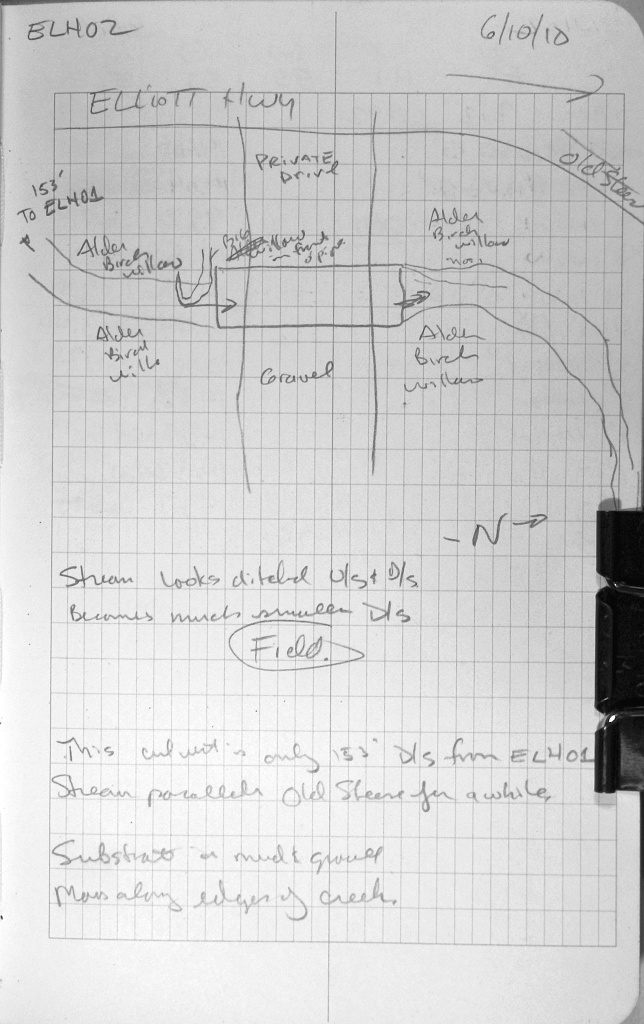 ELH02
6/10/10
ELLIOTT Hwy
PRIVATE
Drive
Old Steese
153'
TO ELH01
Alder
Birch
willow
Big
willow
in front
of pipe
Alder
Birch
willow
moss
Alder
Birch
willo
Gravel
Alder
Birch
willow
- N →
Stream looks ditched U/s & D/s.
Becomes much smaller D/s
Field.
This culvert is only 153' D/s from ELH01
Stream parallels Old Steese for a while.
Substrate is mud & gravel
Moss along edges of creek.